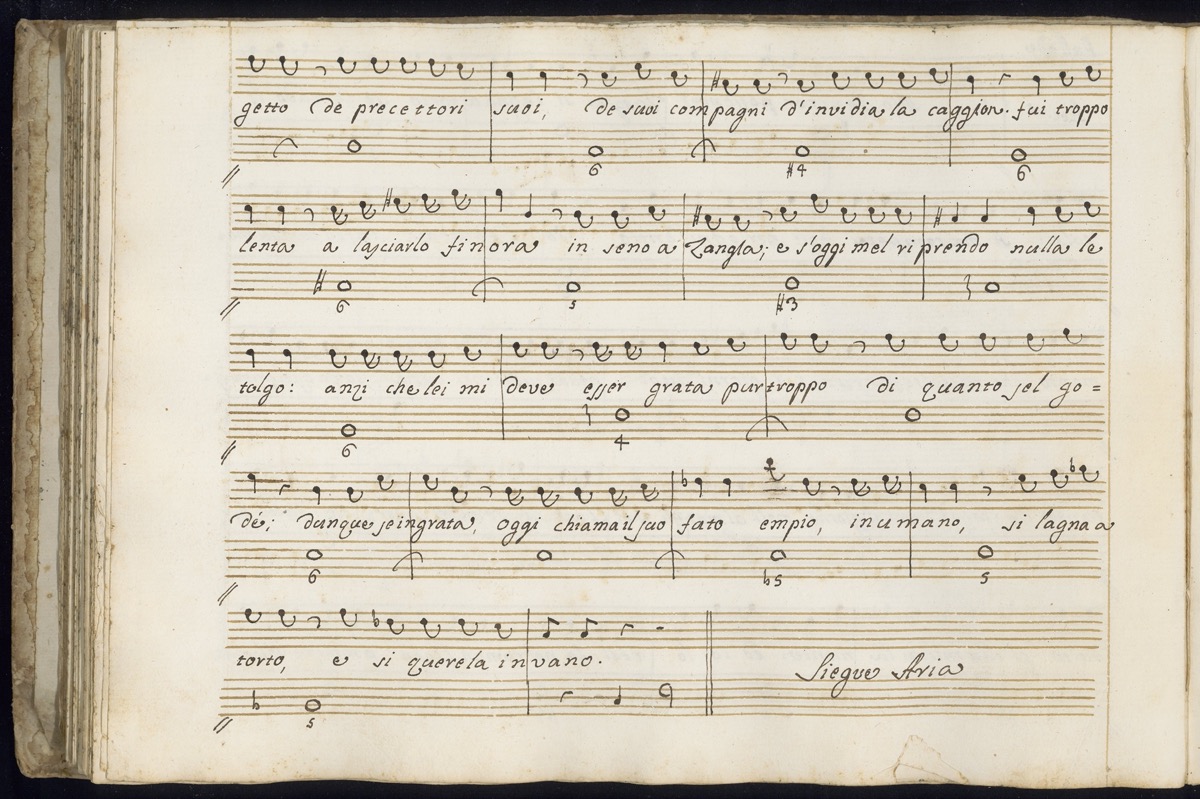 getto de precettori suoi, de suoi compagni d'invidia la caggion. fui troppo
6 #4 6
lenta a lasciarlo finora in seno a Zangla; e s'oggi mel riprendo nulla le
6 5 #3
tolgo: anzi che lei mi deve esser grata pur troppo di quanto sel go=
6 4
dé; dunque se ingrata, oggi chiama il suo fato empio, inumano, si lagna a
6 b5 5
torto, e si querela invano. Siegue Aria
5